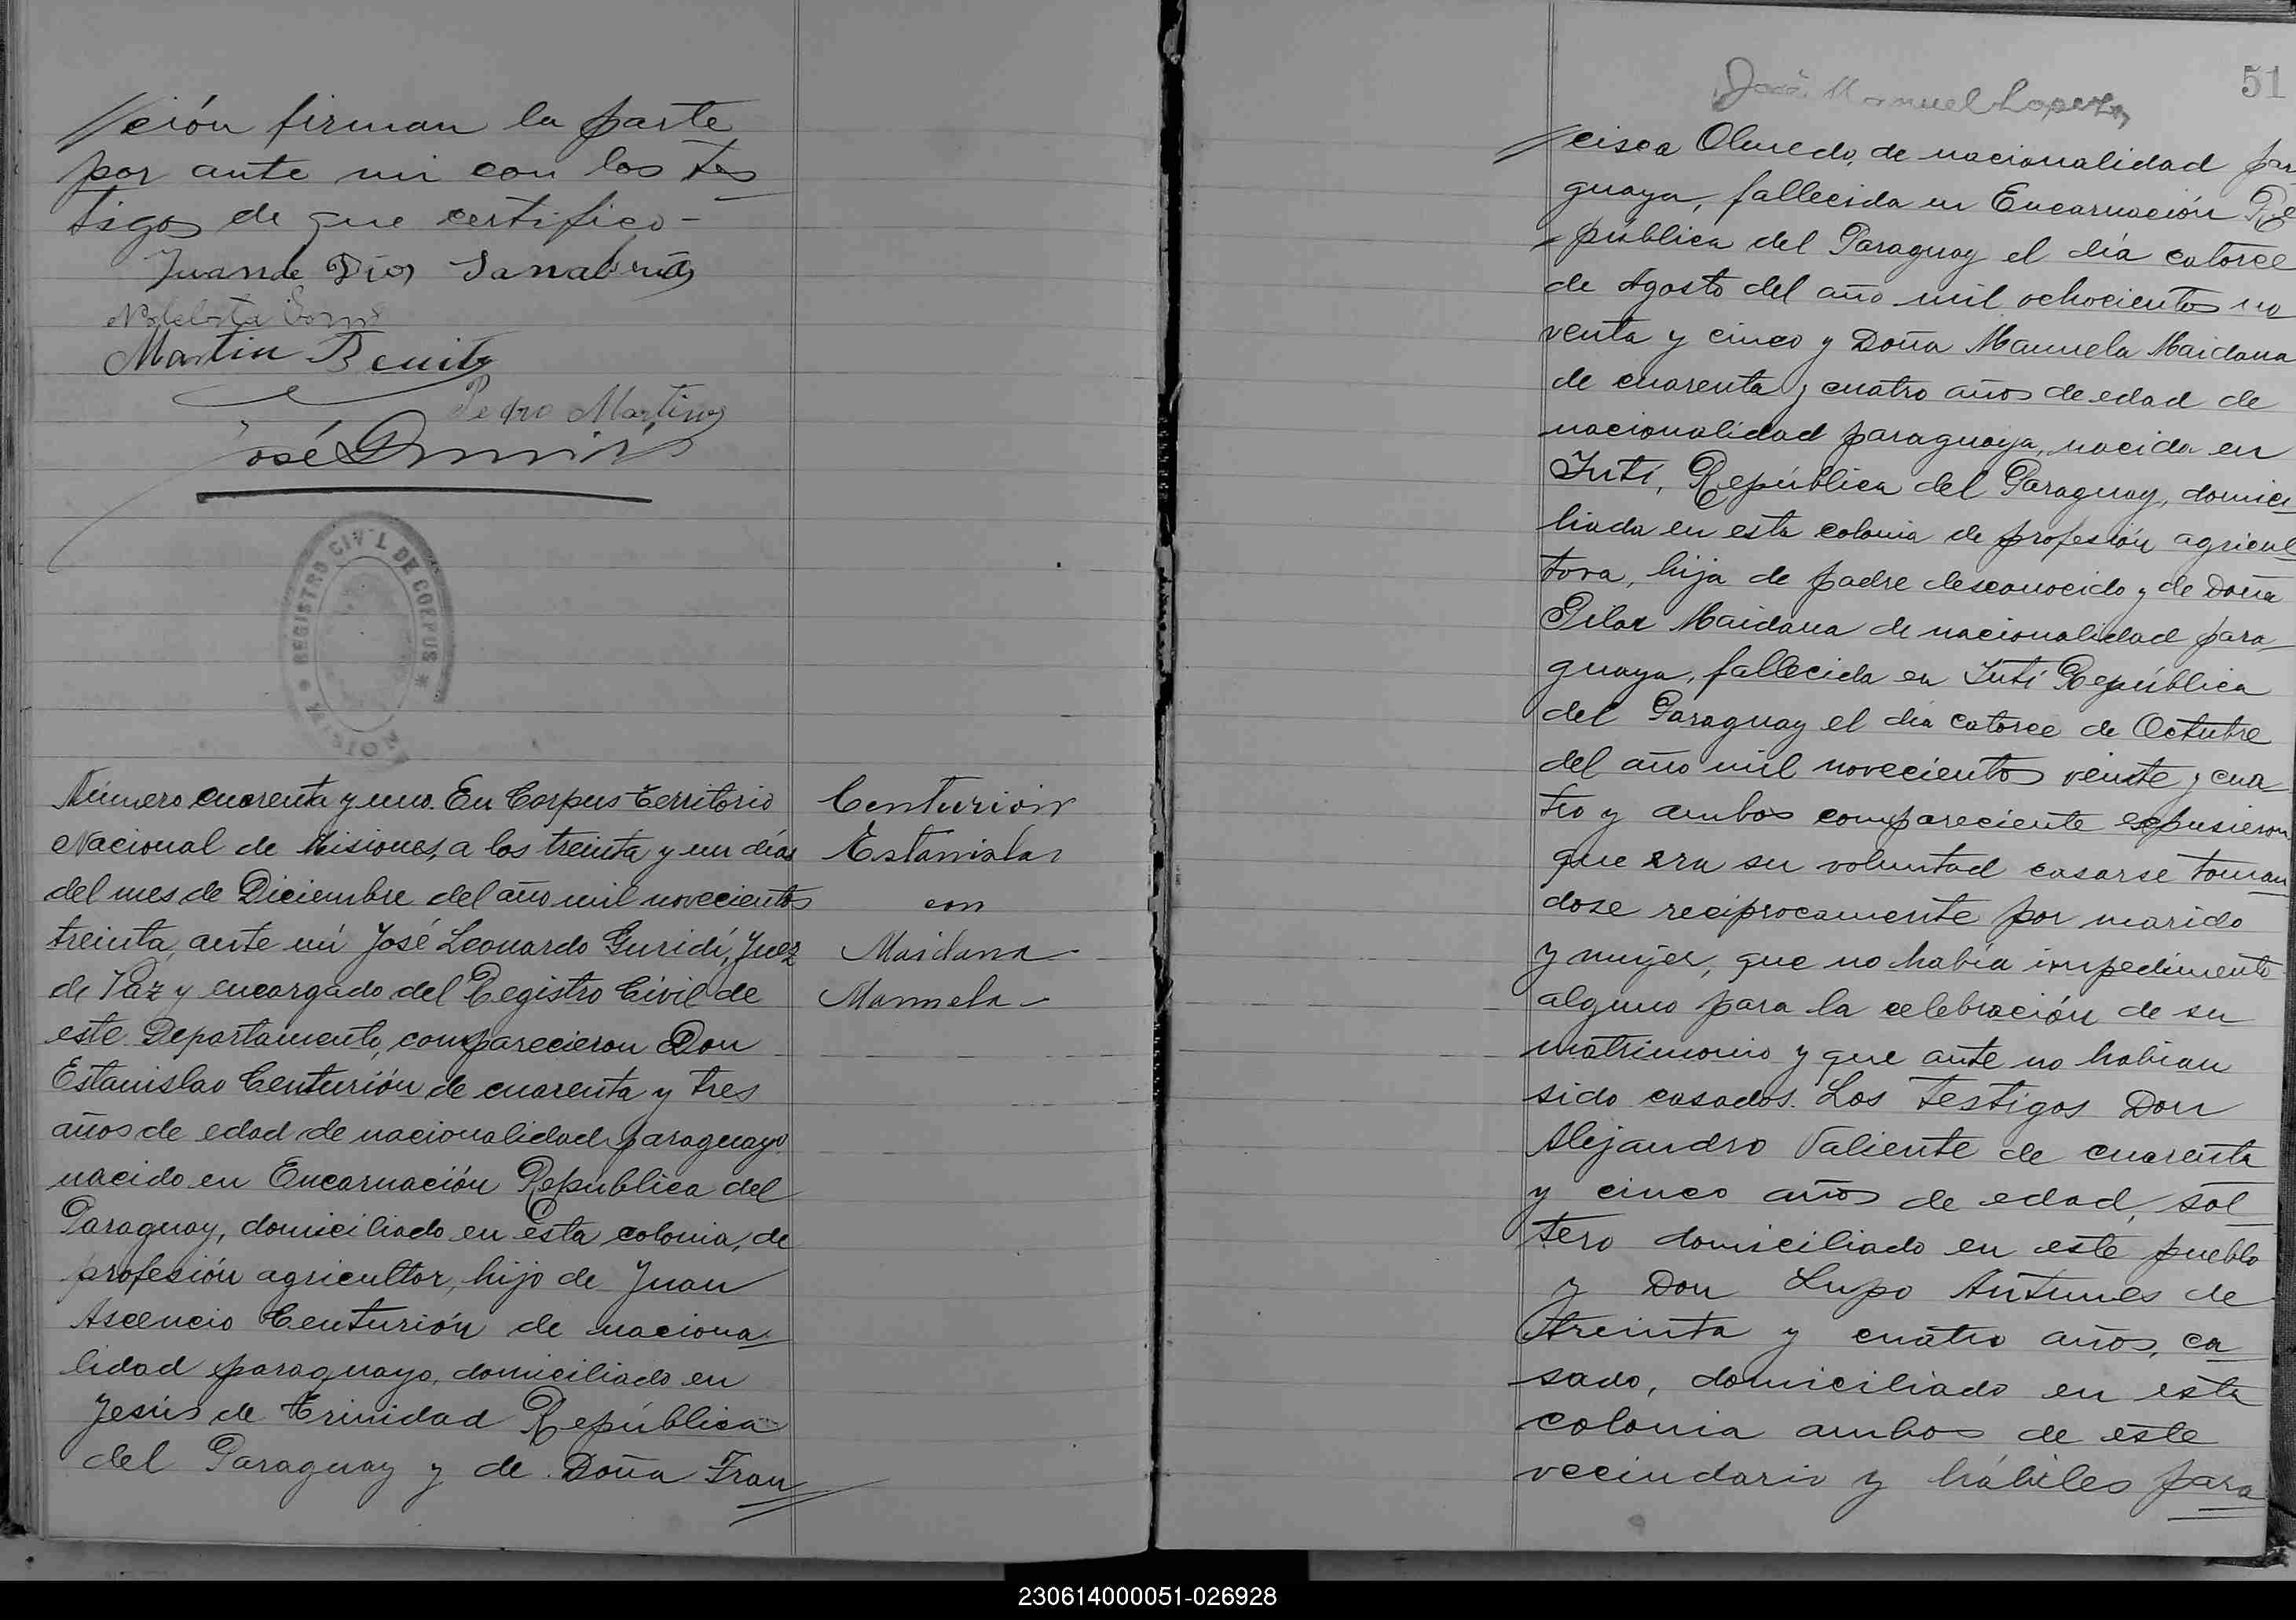 //ción firman la parte
por ante mi con los tes
tigos de que certifico -
Juan de Dios Sanabria
Martin Benitz
Pedro Martinez
José
REGISTRO CIVIL DE CORPUS * MISIONES *
Número cuarenta y uno. En Corpus Territorio
Nacional de Misiones, a los treinta y un días
del mes de Diciembre del año mil novecientos
treinta, ante mí José Leonardo Guridí, Juez
de Paz y encargado del Registro Civil de
este Departamento, comparecieron Don
Estanislao Centurión de cuarenta y tres
años de edad de nacionalidad paraguayo
nacido en Encarnación República del
Paraguay, domiciliado en esta colonia, de
profesión agricultor, hijo de Juan
Ascencio Centurión de naciona
lidad paraguayo, domiciliado en
Jesús de Trinidad República
del Paraguay y de Doña Fran//
Centurión
Estanislao
con
Maidana
Manuela
51
José Manuel Lopez
//cisca Olmedo, de nacionalidad par
guaya, fallecida en Encarnación Re
pública del Paraguay el día catorce
de Agosto del año mil ochocientos no
venta y cinco y Doña Manuela Maidana
de cuarenta y cuatro años de edad de
nacionalidad paraguaya, nacida en
Yutí, República del Paraguay, domici
liada en esta colonia de profesión agricul
tora, hija de padre desconocido y de Doña
Pilar Maidana de nacionalidad para
guaya, fallecida en Yutí República
del Paraguay el día catorce de Octubre
del año mil novecientos veinte y cua
tro y ambos compareciente expusieron
que era su voluntad casarse toman
dose reciprocamente por marido
y mujer, que no había impedimento
alguno para la celebración de su
matrimonio y que ante no habían
sido casados. Los testigos Don
Alejandro Valiente de cuarenta
y cinco años de edad, sol
tero domiciliado en este pueblo
y Don Lupo Antunes de
treinta y cuatro años, ca
sado, domiciliado en esta
colonia ambos de este
vecindario y hábiles para
230614000051-026928